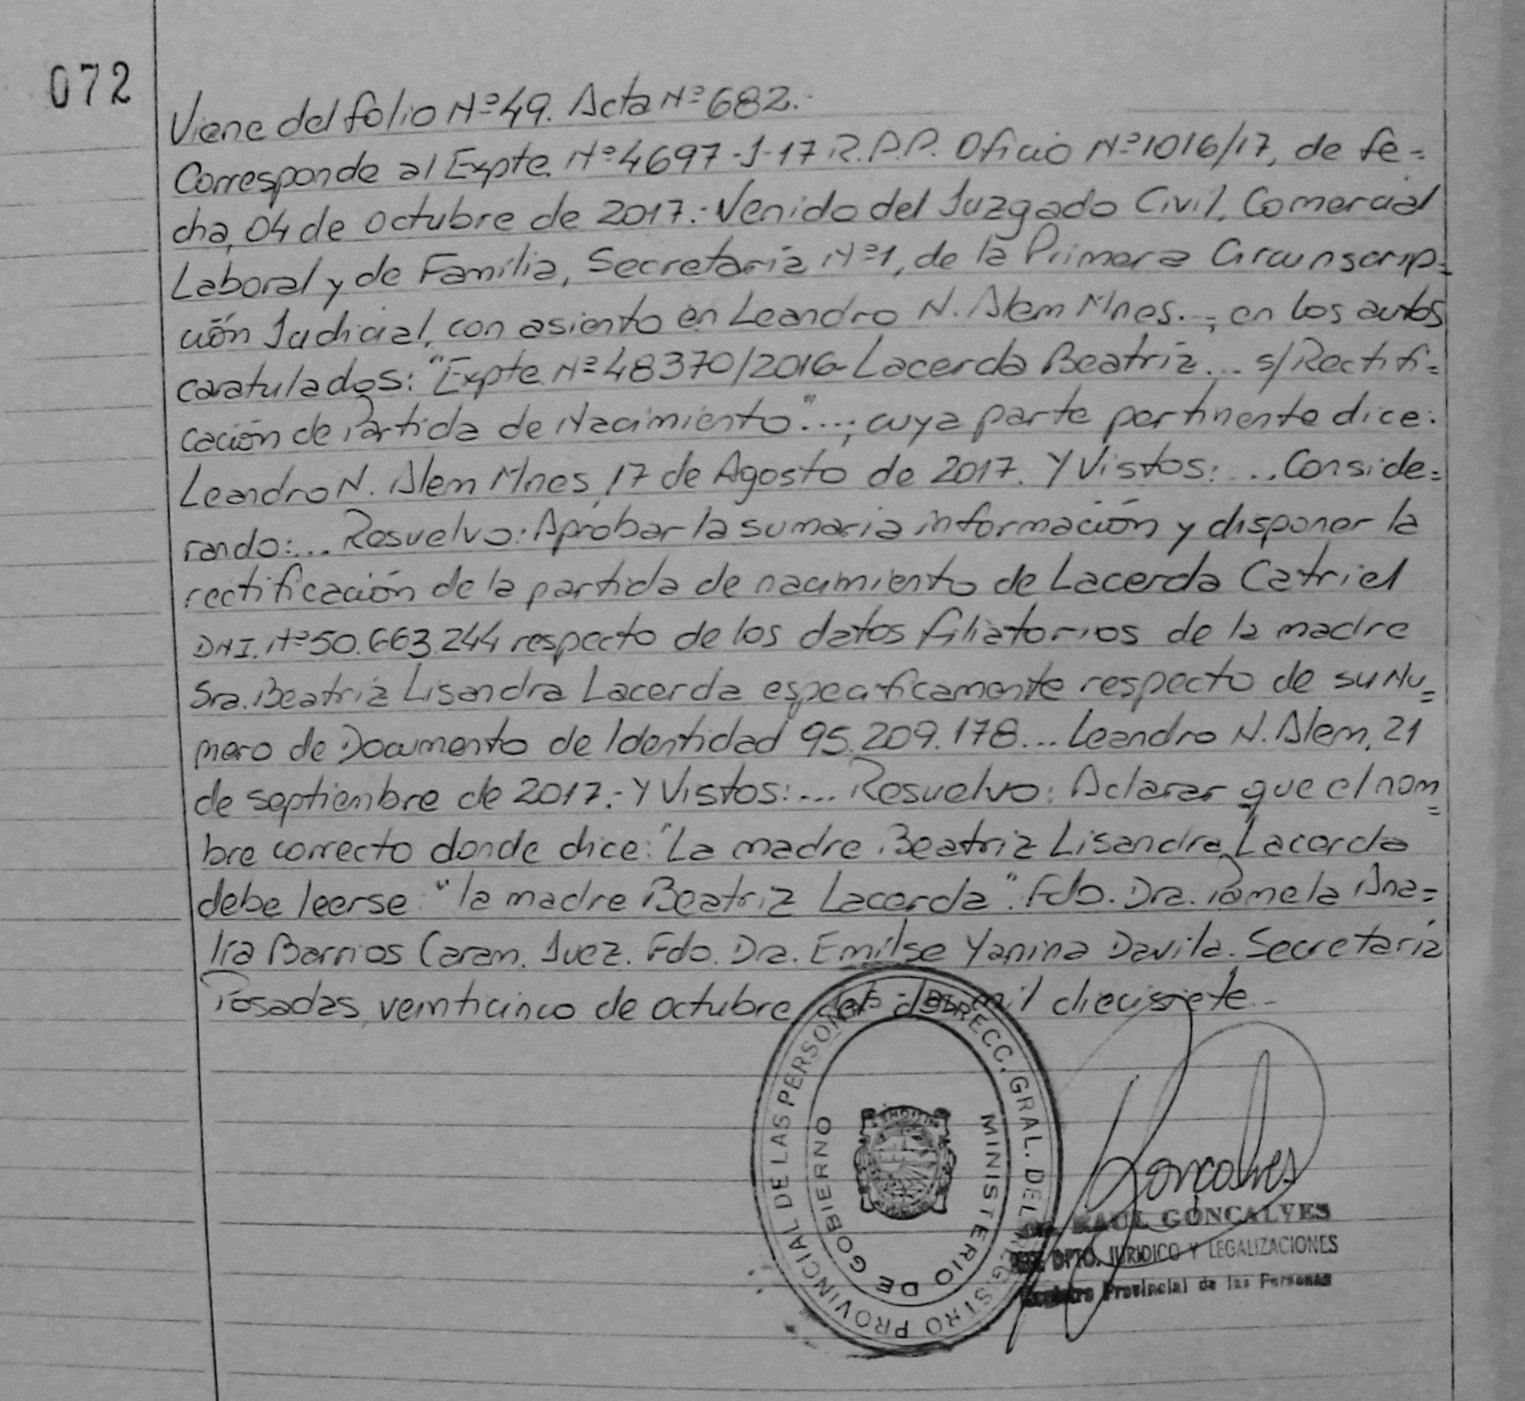 072
Viene del folio Nº 49. Acta Nº 682.-
Corresponde al Expte. Nº 4697-J-17 R.P.P. Oficio Nº 1016/17, de fe=
cha, 04 de octubre de 2017.- Venido del Juzgado Civil, Comercial
Laboral y de Familia, Secretaría Nº 1, de la Primera Circunscrip=
ción Judicial, con asiento en Leandro N. Alem Mnes...; en los autos
caratulados: "Expte. Nº 48370/2016- Lacerda Beatríz... s/Rectifi=
cación de Partida de Nacimiento"...; cuya parte pertinente dice:
Leandro N. Alem Mnes, 17 de Agosto de 2017. Y Vistos:... Conside=
rando:... Resuelvo: Aprobar la sumaria información y disponer la
rectificación de la partida de nacimiento de Lacerda Catriel
DNI. Nº 50.663.244 respecto de los datos filiatorios de la madre
Sra. Beatríz Lisandra Lacerda especificamente respecto de su Nu=
mero de Documento de Identidad 95.209.178... Leandro N. Alem, 21
de septiembre de 2017.- Y Vistos:... Resuelvo: Aclarar que el nom=
bre correcto donde dice: "La madre Beatriz Lisandra Lacerda
debe leerse: "la madre Beatriz Lacerda". Fdo. Dra. Pamela Ana=
lia Barrios Caram. Juez. Fdo. Dra. Emilse Yanina Davila. Secretaria
Posadas, veinticinco de octubre del dos mil diecisiete.-
DIRECC. GRAL. DEL REGISTRO PROVINCIAL DE LAS PERSONAS
MINISTERIO DE GOBIERNO
Goncalves
RAUL GONCALVES
DPTO. JURIDICO Y LEGALIZACIONES
Registro Provincial de las Personas